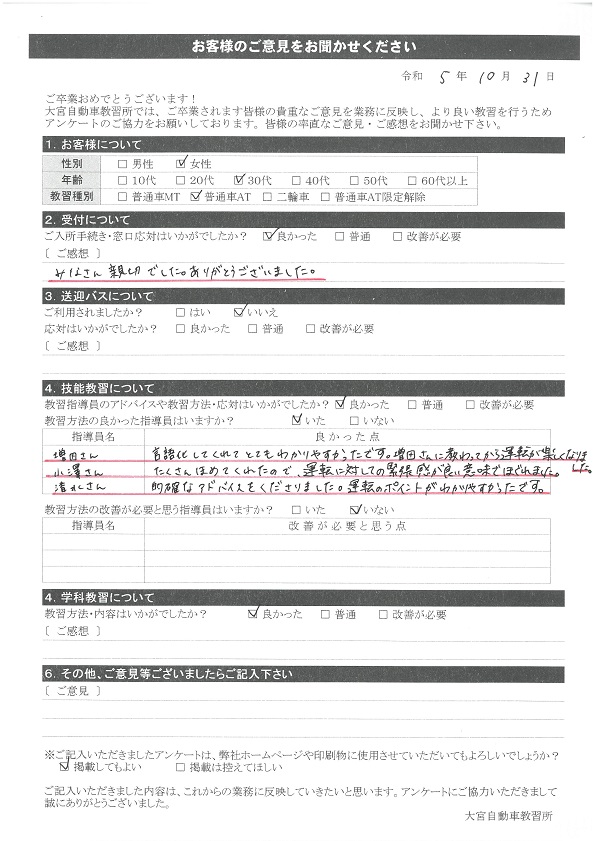 お客様のご意見をお聞かせください
令和 5 年 10 月 31 日
ご卒業おめでとうございます！
大宮自動車教習所では、ご卒業されます皆様の貴重なご意見を業務に反映し、より良い教習を行うため
アンケートのご協力をお願いしております。皆様の率直なご意見・ご感想をお聞かせ下さい。
1. お客様について
性別 □男性 ☑女性
年齢 □10代 □20代 ☑30代 □40代 □50代 □60代以上
教習種別 □普通車MT ☑普通車AT □二輪車 □普通車AT限定解除
2. 受付について
ご入所手続き・窓口応対はいかがでしたか？ ☑良かった □普通 □改善が必要
〔 ご感想 〕
みなさん親切でした。ありがとうございました。
3. 送迎バスについて
ご利用されましたか？ □はい ☑いいえ
応対はいかがでしたか？ □良かった □普通 □改善が必要
〔 ご感想 〕
4. 技能教習について
教習指導員のアドバイスや教習方法・応対はいかがでしたか？ ☑良かった □普通 □改善が必要
教習方法の良かった指導員はいますか？ ☑いた □いない
指導員名 良かった点
増田さん 言語化してくれてとてもわかりやすかったです。増田さんに教わってから運転が楽しくなりました。
小澤さん たくさんほめてくれたので、運転に対しての緊張感が良い意味でほぐれました。
清水さん 的確なアドバイスをくださりました。運転のポイントがわかりやすかったです。
教習方法の改善が必要と思う指導員はいますか？ □いた ☑いない
指導員名 改善が必要と思う点
4. 学科教習について
教習方法・内容はいかがでしたか？ ☑良かった □普通 □改善が必要
〔 ご感想 〕
6. その他、ご意見等ございましたらご記入下さい
〔 ご意見 〕
※ご記入いただきましたアンケートは、弊社ホームページや印刷物に使用させていただいてもよろしいでしょうか？
☑掲載してもよい □掲載は控えてほしい
ご記入いただきました内容は、これからの業務に反映していきたいと思います。アンケートにご協力いただきまして
誠にありがとうございました。
大宮自動車教習所